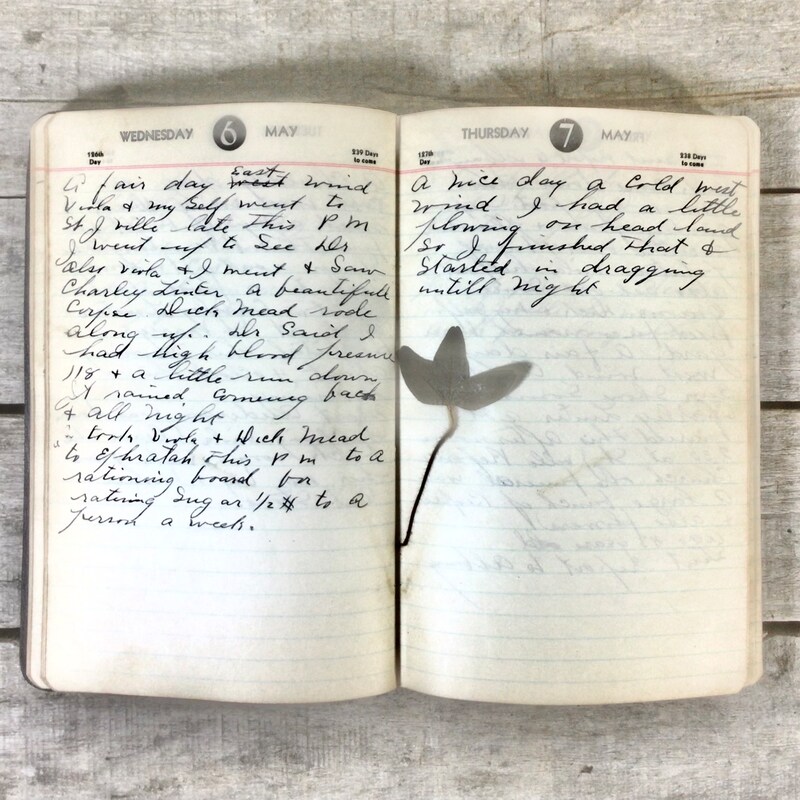 WEDNESDAY 6 MAY
126th Day
239 Days to come
A fair day west east wind
Viola & my Self went to
St J ville late This P M
I went up to See Dr
also Viola & I went & Saw
Charley Linter a beautifull
Corpse. Dick Mead rode
along up. Dr Said I
had high blood presure
118 & a little run down
It rained coming back
& all night
I took Viola & Dick Mead
to Ephratah This P M to a
rationing board for
rationing Sugar 1/2 # to a
person a week.
THURSDAY 7 MAY
127th Day
238 Days to come
A nice day a cold west
wind I had a little
plowing on head land
So I finished that &
Started in dragging
untill night